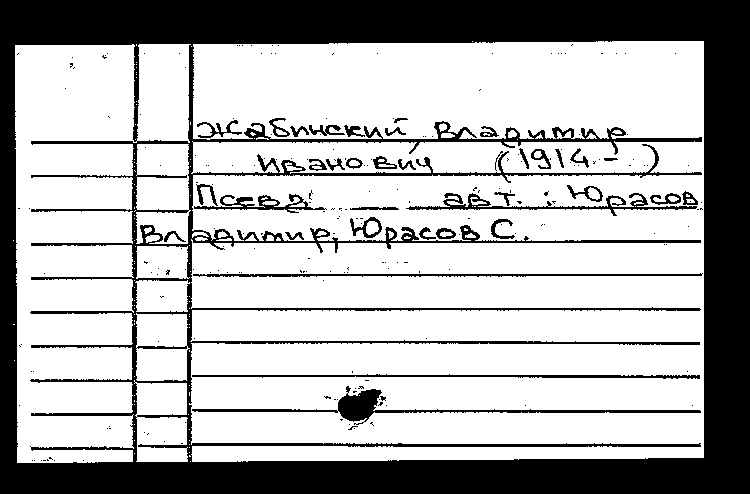 Жабинский Владимир
Иванович (1914 - )
Псевд. авт.: Юрасов
Владимир; Юрасов С.